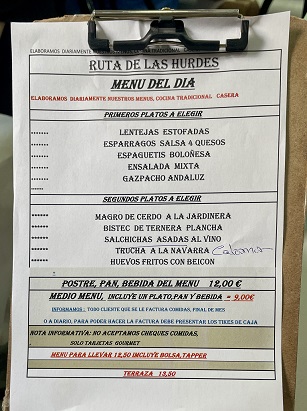 ELABORAMOS DIARIAMENTE TRADICIONAL
RUTA DE LAS HURDES
MENU DEL DIA
ELABORAMOS DIARIAMENTE NUESTROS MENUS, COCINA TRADICIONAL CASERA
PRIMEROS PLATOS A ELEGIR
LENTEJAS ESTOFADAS
ESPARRAGOS SALSA 4 QUESOS
ESPAGUETIS BOLOÑESA
ENSALADA MIXTA
GAZPACHO ANDALUZ
SEGUNDOS PLATOS A ELEGIR
MAGRO DE CERDO A LA JARDINERA
BISTEC DE TERNERA PLANCHA
SALCHICHAS ASADAS AL VINO
TRUCHA A LA NAVARRA
HUEVOS FRITOS CON BEICON
POSTRE, PAN, BEBIDA DEL MENU 12,00 €
MEDIO MENU, INCLUYE UN PLATO,PAN Y BEBIDA = 9,00€
INFORMAMOS : TODO CLIENTE QUE SE LE FACTURA COMIDAS, FINAL DE MES
O A DIARIO, PARA PODER HACER LA FACTURA DEBE PRESENTAR LOS TIKES DE CAJA
NOTA INFORMATIVA: NO ACEPTAMOS CHEQUES COMIDAS,
SOLO TARJETAS GOURMET
MENU PARA LLEVAR 12,50 INCLUYE BOLSA,TAPPER
TERRAZA 13,50